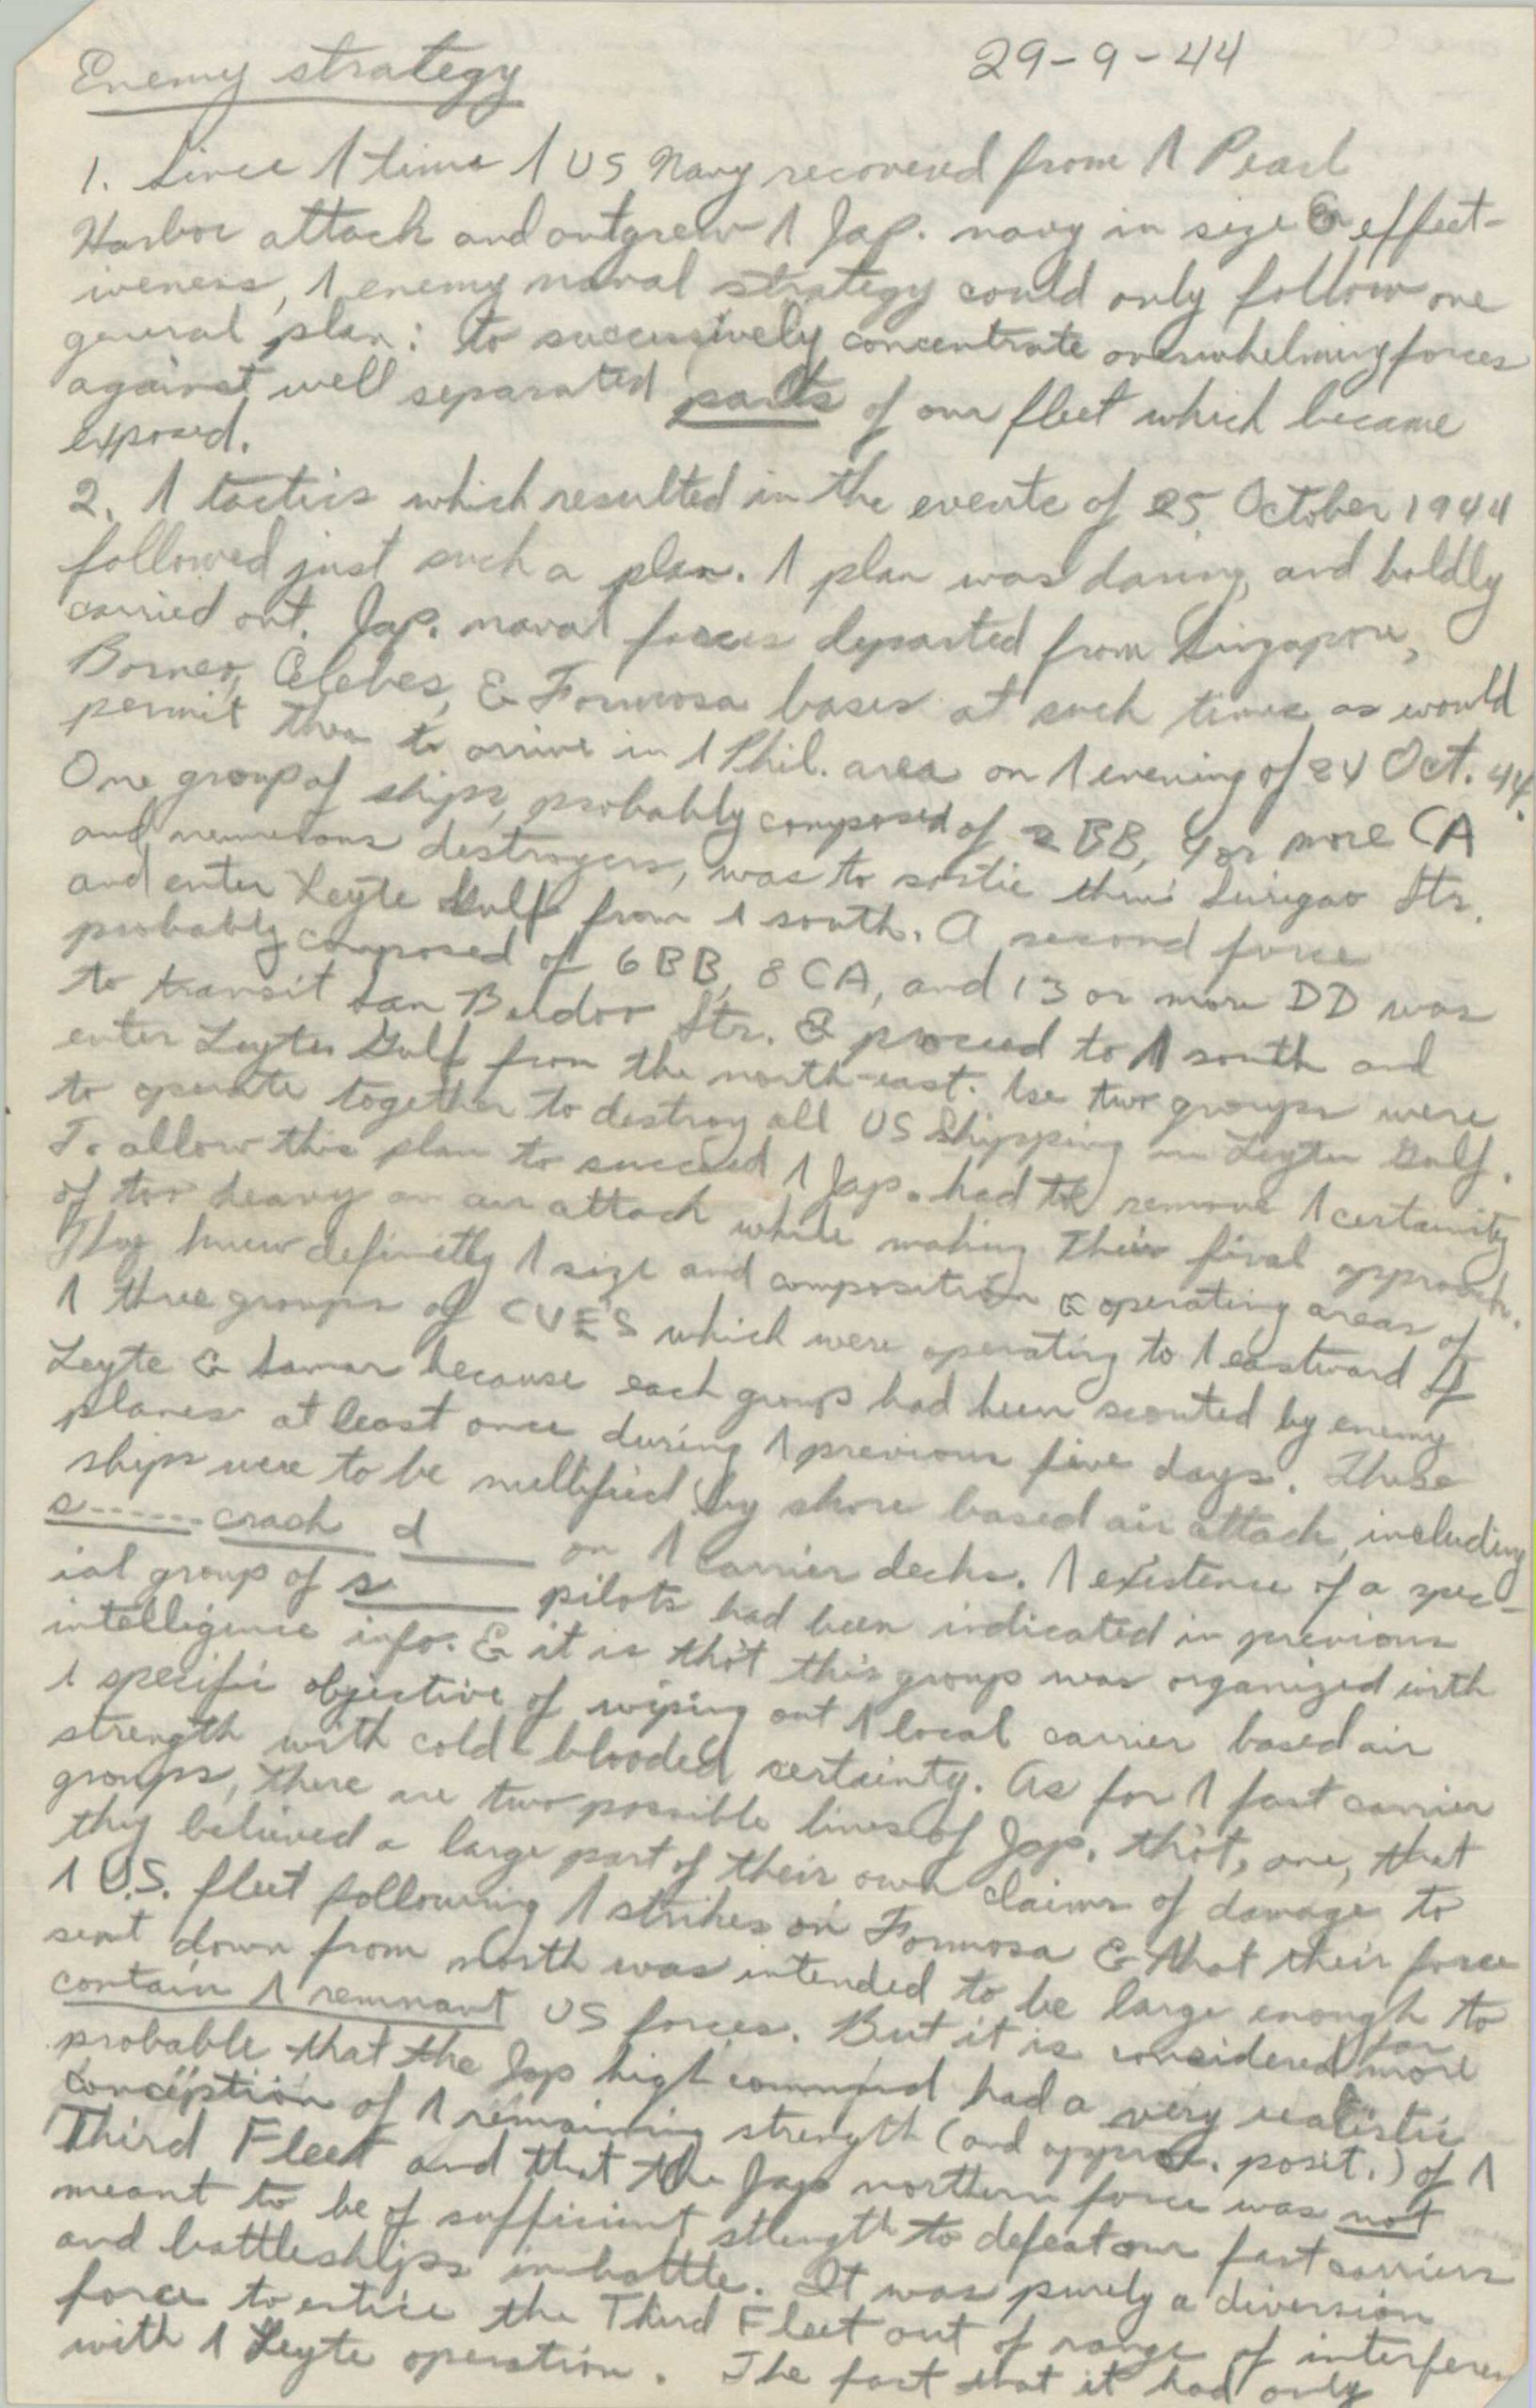 Enemy strategy
29-9-44
1. Since 1 time 1 US Navy recovered from 1 Pearl
Harbor attack and outgrew 1 Jap. navy in size & effect-
iveness, 1 enemy naval strategy could only follow one
general plan: to successively concentrate overwhelming forces
against well separated parts of our fleet which became
exposed.
2. 1 tactics which resulted in the events of 25 October 1944
followed just such a plan. 1 plan was daring, and boldly
carried out. Jap. naval forces departed from Singapore,
Borneo, Celebes, & Formosa bases at such times as would
permit them to arrive in 1 Phil. area on 1 evening of 24 Oct. 44.
One group of ships, probably composed of 2 BB, 4 or more CA
and numerous destroyers, was to sortie thru Surigao Str.
and enter Leyte Gulf from 1 south. A second force
probably composed of 6 BB, 8 CA, and 13 or more DD was
to transit San Str. & proceed to 1 south and
enter Leyte Gulf from the north-east. 1se two groups were
to operate together to destroy all US Shipping in Leyte Gulf.
To allow this plan to succeed 1 Jap. had to remove 1 certainity
of too heavy an air attack while making their final approach.
They knew definitly 1 size and composition & operating areas of
1 three groups of CVE'S which were operating to 1 eastward of
Leyte & Samar because each group had been scouted by enemy
planes at least once during 1 previous five days. These
ships were to be nullified by shore based air attack, including
s------ crash d____ on 1 carrier decks. 1 existence of a spec-
ial group of s____ pilots had been indicated in previous
intelligence info. & it is tho't this group was organized with
1 specific objective of wiping out 1 local carrier based air
strength with cold-blooded certainty. As for 1 fast carrier
groups, there are two possible lines of Jap. tho't, one, that
they believed a large part of their own claims of damage to
1 U.S. fleet following 1 strikes on Formosa & that their force
sent down from north was intended to be large enough to
contain 1 remnant US forces. But it is considered far more
probable that the Jap high command had a very realistic
conception of 1 remaining strength (and approx. posit.) of 1
Third Fleet and that the Jap northern force was not
meant to be of sufficient strength to defeat our fast carriers
and battleships in battle. It was purely a diversion
force to entice the Third Fleet out of range of interferen
with 1 Leyte operation. The fact that it had only